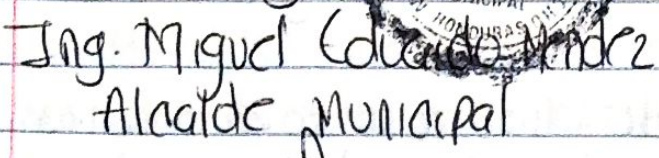 HONDURAS
Ing. Miguel Eduardo Mendez
Alcalde Municipal